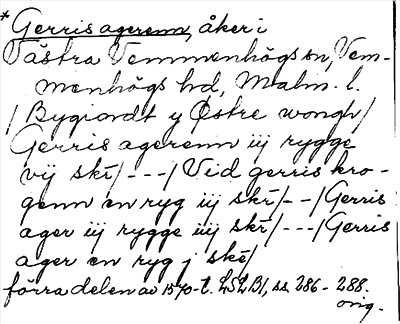 *Gerris agerenn, åker i
Västra Vemmenhögs sn, Vem-
menhögs hd, Malm. l.
/Bygiordt y Østre wongh/
Gerris agerenn iij rygge
vij skr/---/Vid gerris kro-
genn en ryg iij skr/--/Gerris
ager iij rygge iiij skr/---/Gerris
ager en ryg j skr/
förra delen av 1570-t. LSLB1, ss. 286-288.
orig.